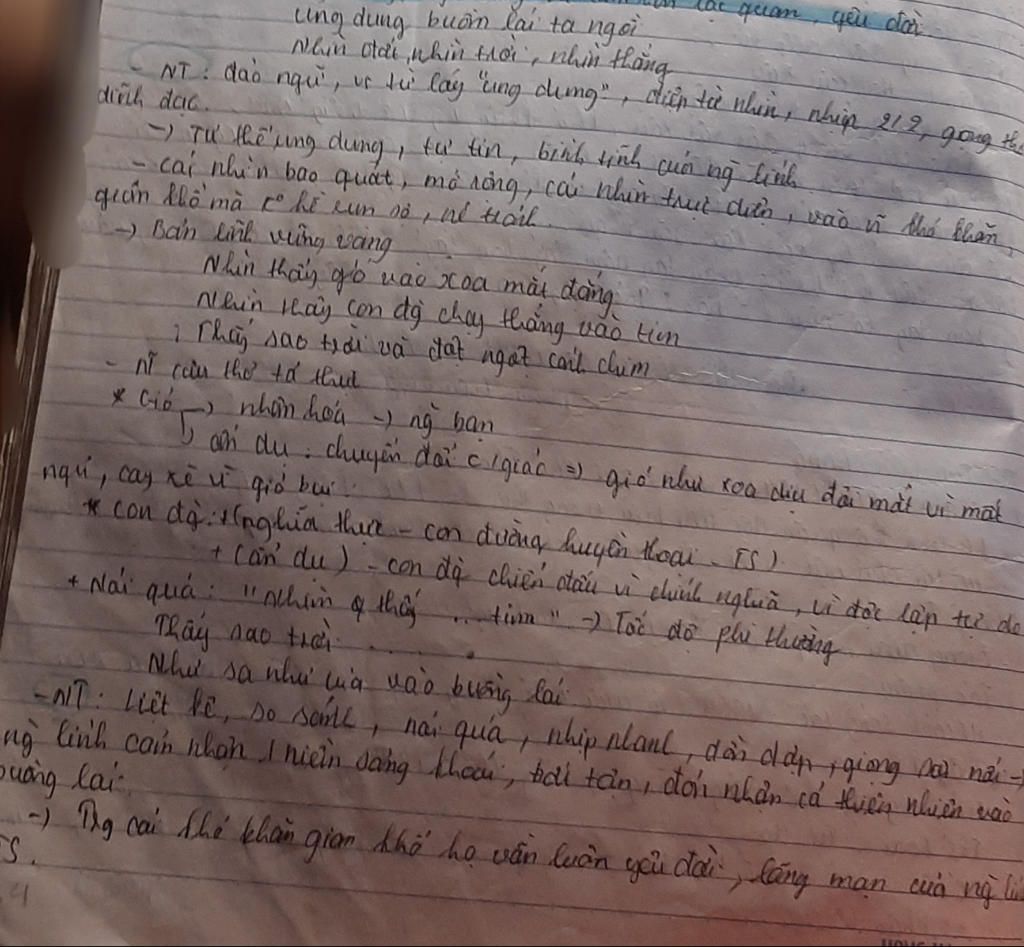 lạc quan, yêu đời
Ung dung buồng lái ta ngồi
Nhìn đất, nhìn trời, nhìn thẳng
- NT: đảo ngữ, vs từ láy "ung dung", điệp từ nhìn, nhịp 2/2, giọng thơ
dĩnh đạc.
-> Tư thế ung dung, tự tin, bình tĩnh của ng̀ lính
- cái nhìn bao quát, mở rộng, cái nhìn trực diện, vào vĩ khó khăn,
gian khổ mà k° hề run sợ, né tránh
-> Bản lĩnh vững vàng
Nhìn thấy gió vào xoa mắt đắng
Nhìn thấy con đg̀ chạy thẳng vào tim
Thấy sao trời và đột ngột cánh chim
- NT câu thơ tả thực
* Gió -> nhân hóa -> ng̀ bạn
ẩn dụ: chuyển đổi c/giác => gió như xoa dịu đôi mắt vì mất
ngủ, cay xè vì gió bụi.
* Con đg̀: + (nghĩa thực - con đường huyền thoại - TS)
+ (ẩn dụ) - con đg̀ chiến đấu vì chính nghĩa, vì độc lập tự do
+ Nói quá: "nhìn thấy ... tim" -> Tốc độ phi thường
Thấy sao trời .......
Như sa như ùa vào buồng lái
- NT: liệt kê, so sánh, nói quá, nhịp nhanh, dồn dập, giọng sôi nổi ->
ng̀ lính cảm nhận / niềm sảng khoái, bất tận, đón nhận cả thiên nhiên vào
buồng lái.
-> Trg cái khó khăn gian khổ họ vẫn luôn yêu đời, lãng mạn của ng̀ lính
TS.